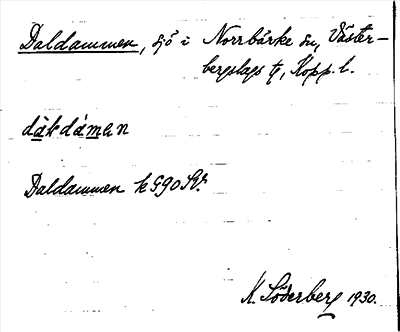 Daldammen, sjö i Norrbärke sn, Väster-
bergslags tg, Kopp. l.
dàḷdáman
Daldammen k G90 SV.
K. Söderberg 1930.